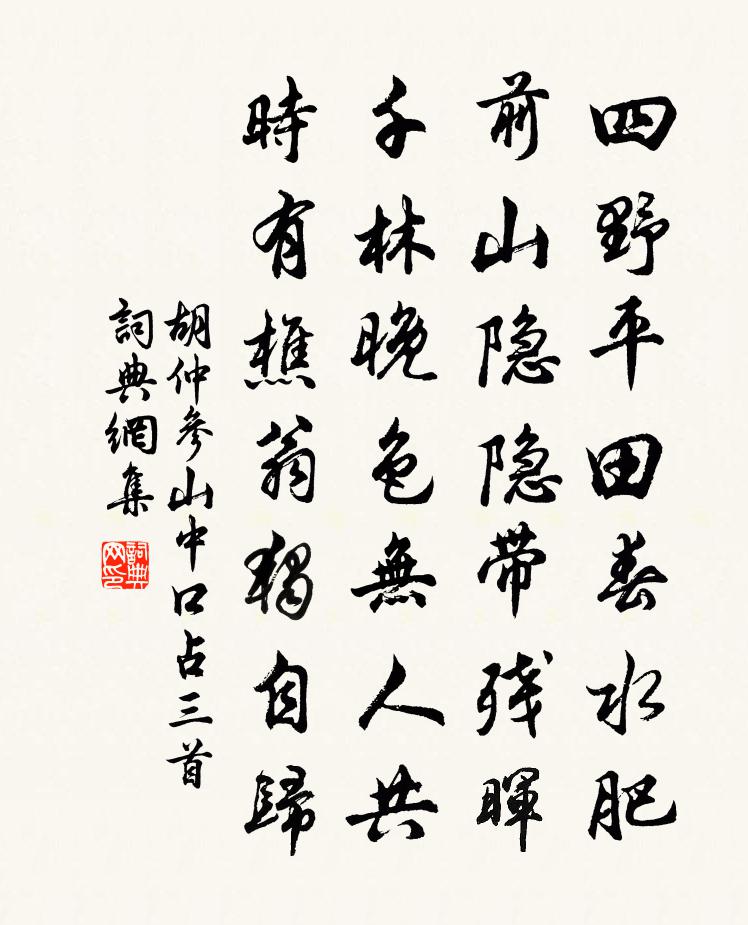 四野平田春水肥
前山隐隐带残暉
千林晚色無人共
時有樵翁獨自歸
胡仲參山中口占三首
詞典網集
詞典网印